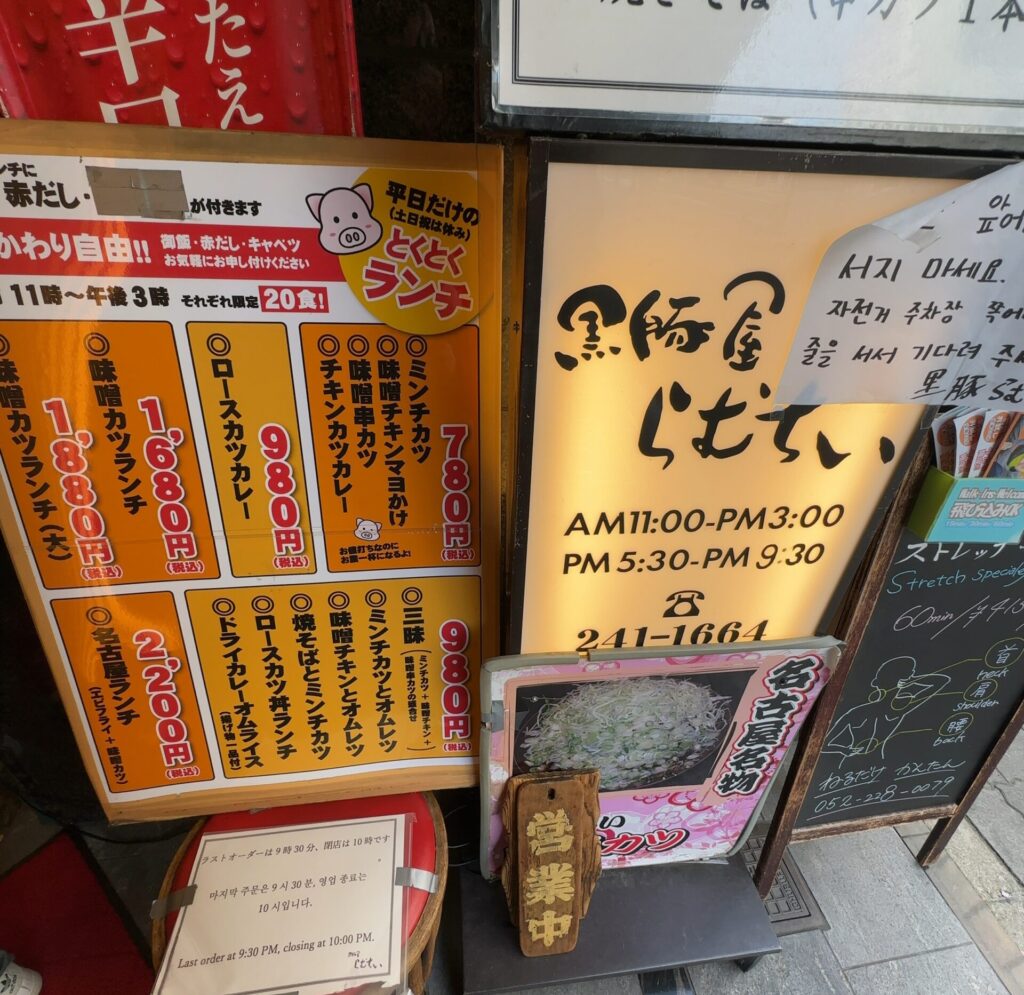 たえ
辛口
焼きそば（串カツ1本
ンチに
赤だし・が付きます
かわり自由!!
御飯・赤だし・キャベツ
お気軽にお申し付けください
11時～午後3時 それぞれ限定20食!
平日だけの
(土日祝は休み)
とくとく
ランチ
◎ミンチカツ
◎味噌チキンマヨかけ
◎味噌串カツ
◎チキンカツカレー
780円
(税込)
お値打ちなのに
お腹一杯になるよ!
◎ロースカツカレー
980円
(税込)
◎味噌カツランチ
1,680円
(税込)
◎味噌カツランチ(大)
1,880円
(税込)
◎三昧(ミンチカツ+味噌チキン+
味噌串カツの組合せ
◎ミンチカツとオムレツ
◎味噌チキンとオムレツ
◎焼そばとミンチカツ
◎ロースカツ丼ランチ
◎ドライカレーオムライス
(揚げ物一品付)
980円
(税込)
◎名古屋ランチ
(エビフライ+味噌カツ)
2,200円
(税込)
黒豚屋
らむちぃ
AM11:00-PM3:00
PM5:30-PM9:30
241-1664
서지 마세요.
자전거 주차장 쪽에
줄을 서서 기다려 주
黒豚
Walk-Ins Welcome
飛び込みOK
ストレッチ
Stretch Specialist
60min/
首
neck
肩
shoulder
腰
back
ねるだけ かんたん
052-228-0079
名古屋名物
カツ
営業中
ラストオーダーは9時30分、閉店は10時です
。
마지막 주문은 9시 30분, 영업 종료는
10시입니다.
Last order at 9:30 PM, closing at 10:00 PM.
らむちぃ